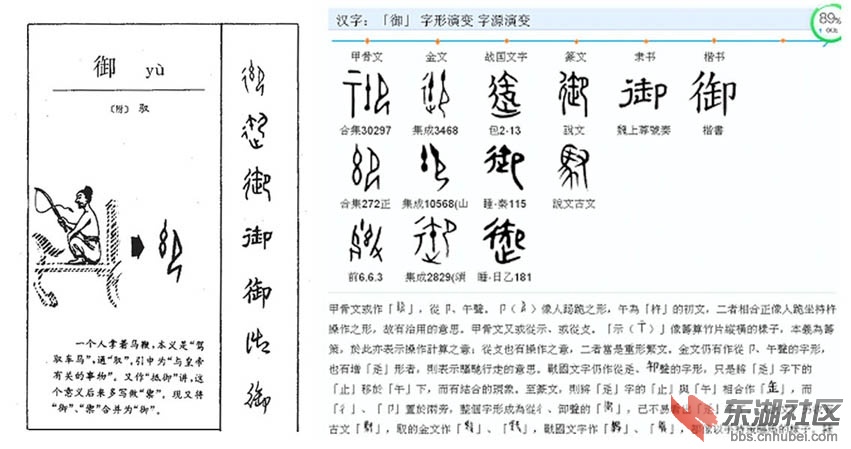 御 yù
〔附〕 驭
一个人拿着马鞭,本义是“驾
驭车马”,通“驭”,引申为“与皇帝
有关的事物”。又作“抵御”讲,这
个意义后来多写做“禦”。现又将
“御”、“禦”合并为“御”。
汉字:「御」字形演变 字源演变
89%
甲骨文 金文 战国文字 篆文 隶书 楷书
御 御
合集30297 集成3468 包2·13 說文 魏上尊號奏 楷書
合集272正 集成10568(山 睡·秦115 說文古文
前6.6.3 集成2829(頌 睡·日乙181
甲骨文或作「」,從卩、午聲。卩()像人跽跪之形,午為「杵」的初文,二者相合正像人跪坐持杵
操作之形,故有治用的意思。甲骨文又或從示、或從攴。「示()」像籌算竹片縱橫的樣子,本義為籌
策,於此亦表示操作計算之意;從攴也有操作之意,二者當是重形繁文。金文仍有作從卩、午聲的字形,
也有增「辵」形者,則表示驅馳行走的意思。戰國文字仍作從辵、卸聲的字形,只是將「辵」字下的
「止」移於「午」下,而有結合的現象。至篆文,則將「辵」字的「止」與「午」相合作「」,而
「彳」、「卩」置於兩旁,整個字形成為從彳、卸聲的「」,已不易看出「辵」
古文「」,取的金文作「」、「」,戰國文字作「」、「」,
东湖社区
bbs.cnhubei.com